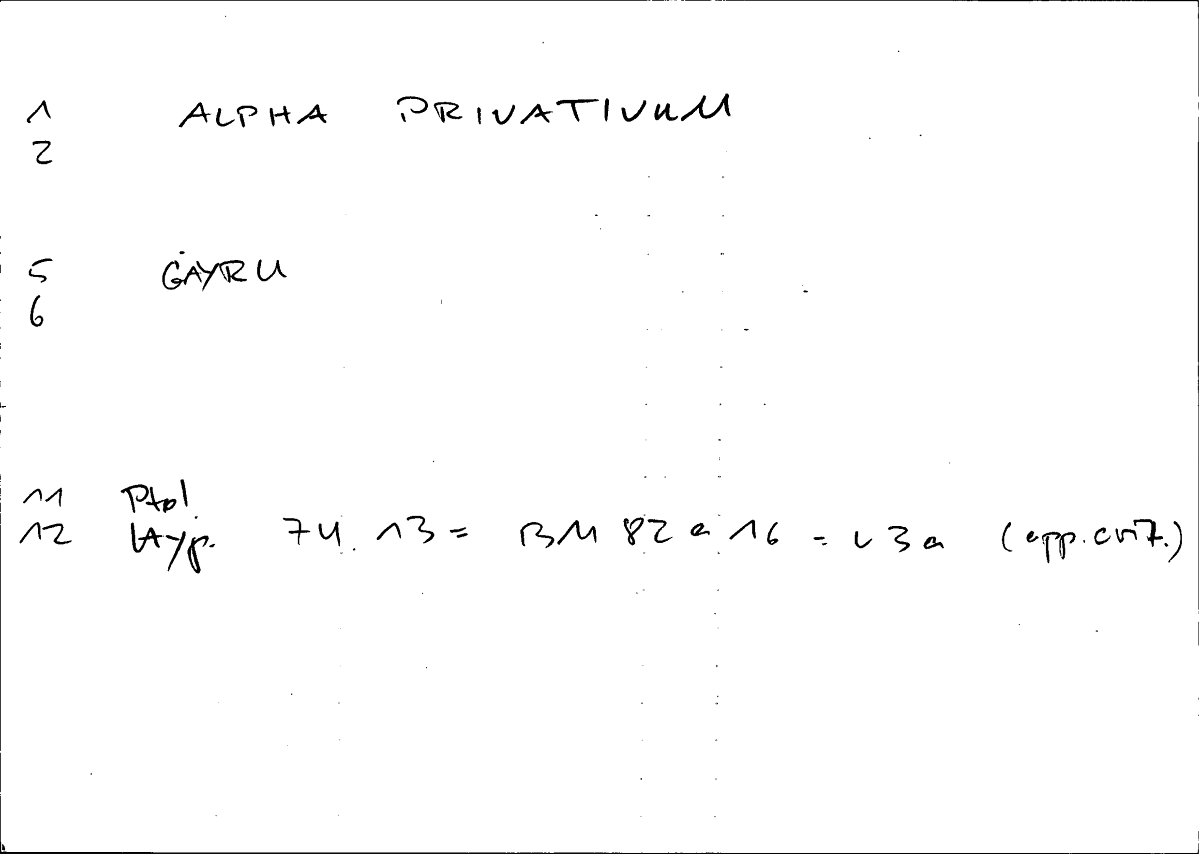 1 ALPHA PRIVATIVUM
2
5 ĠAYRU
6
11 Ptol.
12 Hyp. 74.13 = BM 82a16 = L3a (app.crit.)